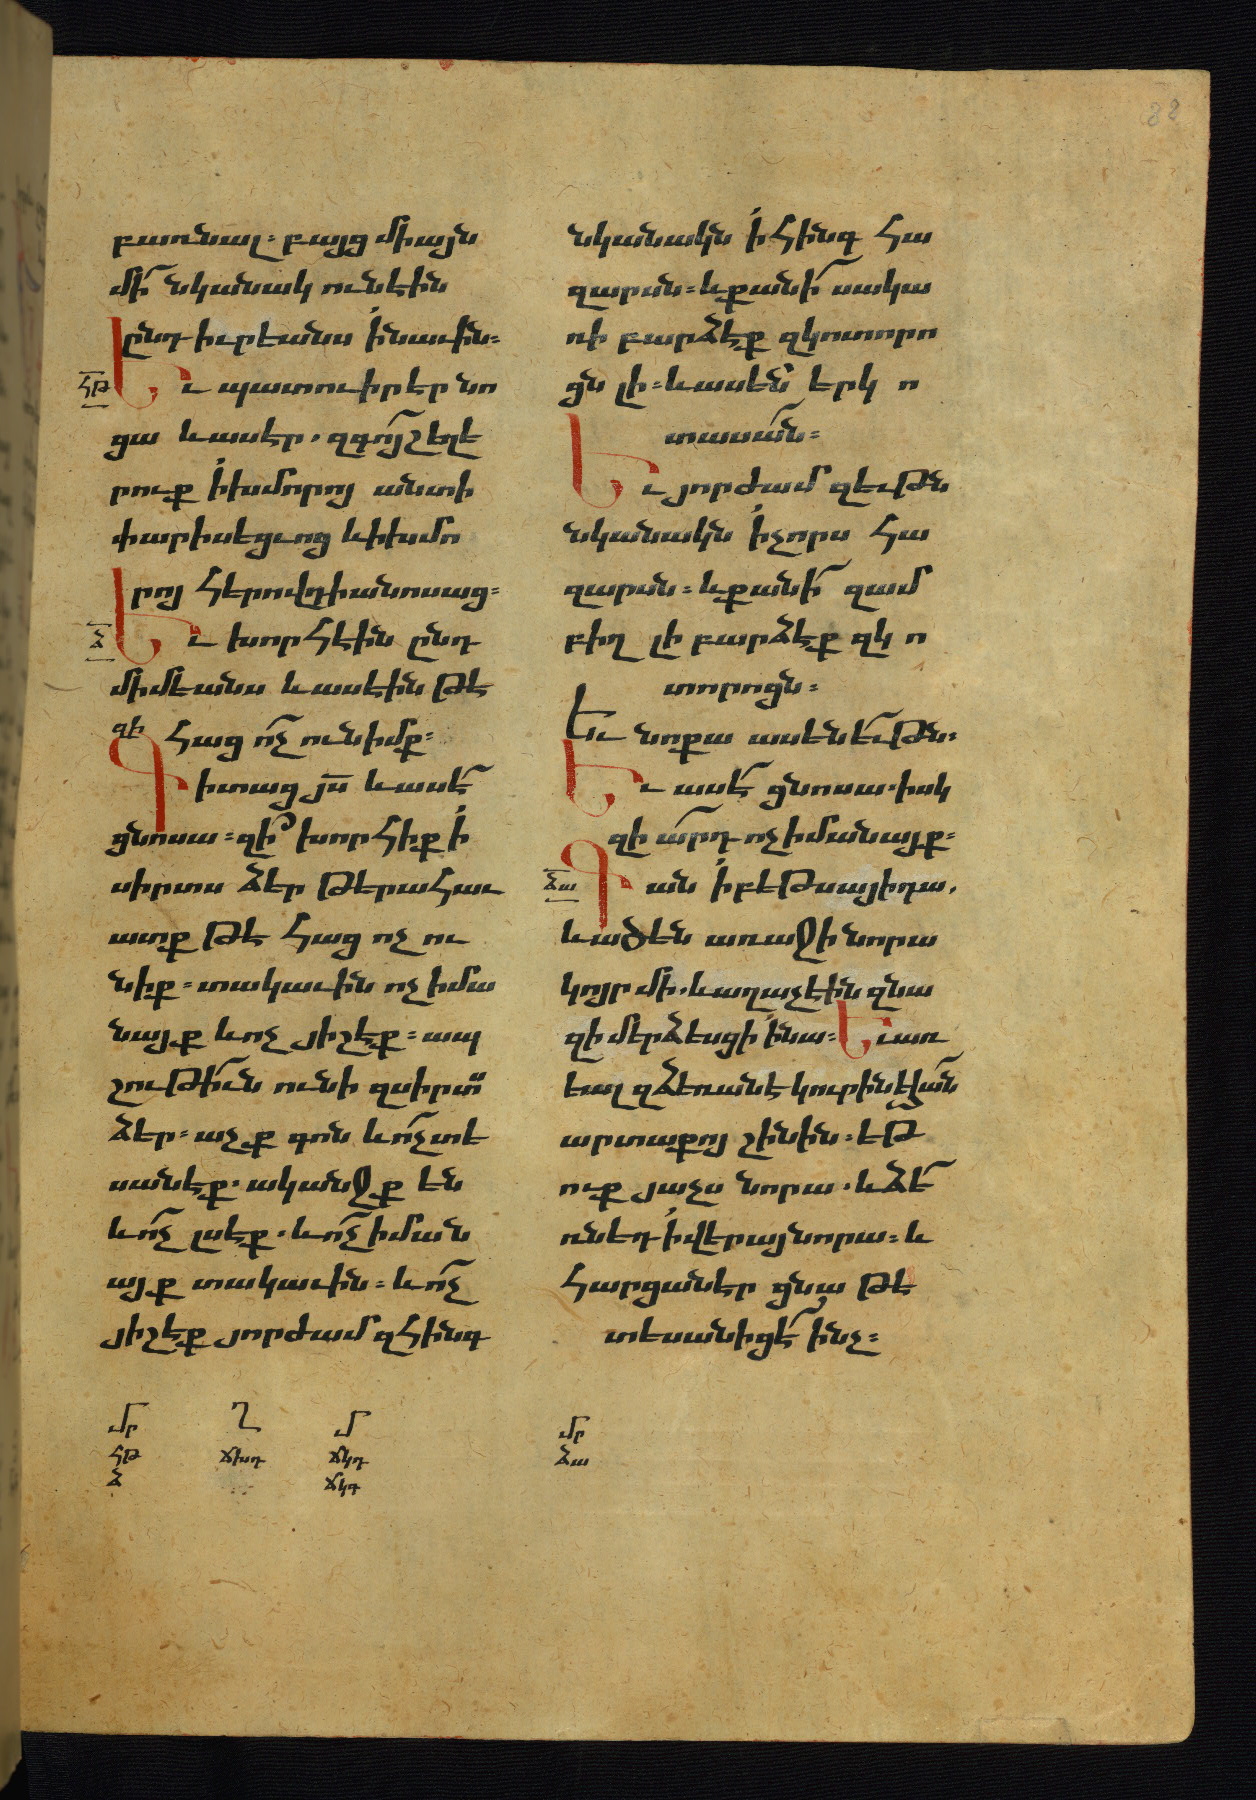 բառնալ։ բայց միայն
մի՛ նկանակ ունէին
ընդ իւրեանս ի նաւին։
ՀԹ Եւ պատուիրէր նո
ցա և ասէր. զգո՛յշ եղե
րուք ի խմորոյ անտի
փարիսեցւոց և ի խմո
րոյ հերովդիանոսաց։
Ձ Եւ խորհէին ընդ
միմեանս և ասէին թէ
զի հաց ո՛չ ունիմք։
Գիտաց յս և ասէ՛
ցնոսա։ զի՞ խորհիք ի
սիրտս ձեր թերահաւ
ատք թէ հաց ոչ ու
նիք։ տակաւին ոչ իմա
նայք և ոչ յիշէք։ ապ
շութի՛ւն ունի զսիրտս
ձեր։ աչք գոն և ո՛չ տե
սանէք. ականջք են
և ո՛չ լսէք. և ո՛չ իման
այք տակաւին։ և ո՛չ
յիշէք յորժամ զհինգ
նկանակն ի հինգ հա
զարսն։ և քանի՛ սակա
ռի բարձէք զկոտորո
ցն լի։ և ասեն՝ երկ ո
տասա՛ն։
Եւ յորժամ զեւթն
նկանակն ի չորս հա
զարսն։ և քանի՛ զամ
բիղ լի բարձէք զկ ո
տորոցն։
Եւ նոքա ասեն ե՛ւթն։
Եւ ասէ՛ ցնոսա. իսկ
զի ա՛րդ ոչ իմանայք։
ՁԱ Գան ի բեթսայիդա.
և ածեն առաջի նորա
կոյր մի. և աղաչէին զնա
զի մերձեսցի ի նա։ Եւ առ
եալ զձեռանէ կուրին եհա՛ն
արտաքոյ շինին։ եթ
ուք յաչս նորա. և ձե՛
ռնեդ ի վերայ նորա։ և
հարցանէր ցնա թէ
տեսանիցե՛ս ինչ։
ՄՐ Ղ Մ
ՀԹ ՃԽԴ ՃԿԴ
Ձ ՃԿԳ
ՄՐ
ՁԱ